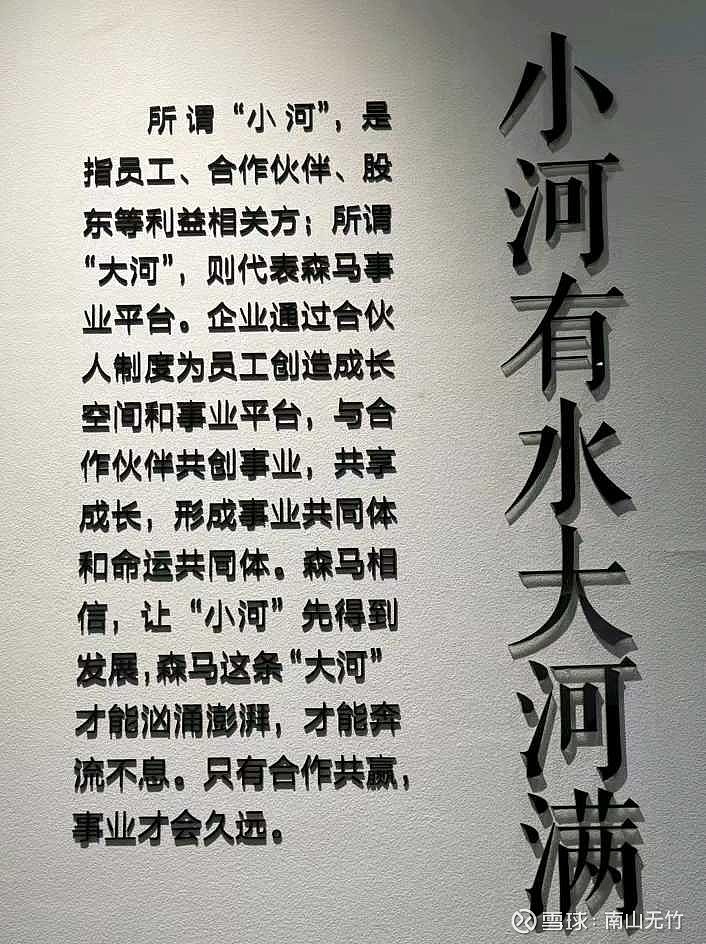 小河有水大河满
所谓“小河”，是
指员工、合作伙伴、股
东等利益相关方；所谓
“大河”，则代表森马事
业平台。企业通过合伙
人制度为员工创造成长
空间和事业平台，与合
作伙伴共创事业，共享
成长，形成事业共同体
和命运共同体。森马相
信，让“小河”先得到
发展，森马这条“大河”
才能汹涌澎湃，才能奔
流不息。只有合作共赢，
事业才会久远。
雪球：南山无竹